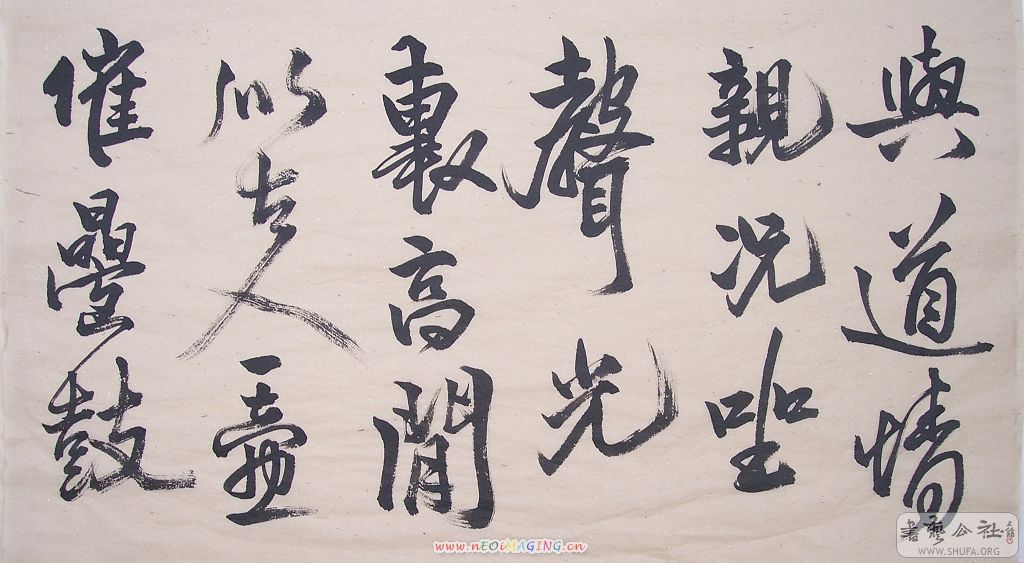 與道情
親况坐
聲光
裏高閒
似古人壺
催疊鼓
書藝公社
WWW.SHUFA.ORG
www.nEOiMAGING.cn